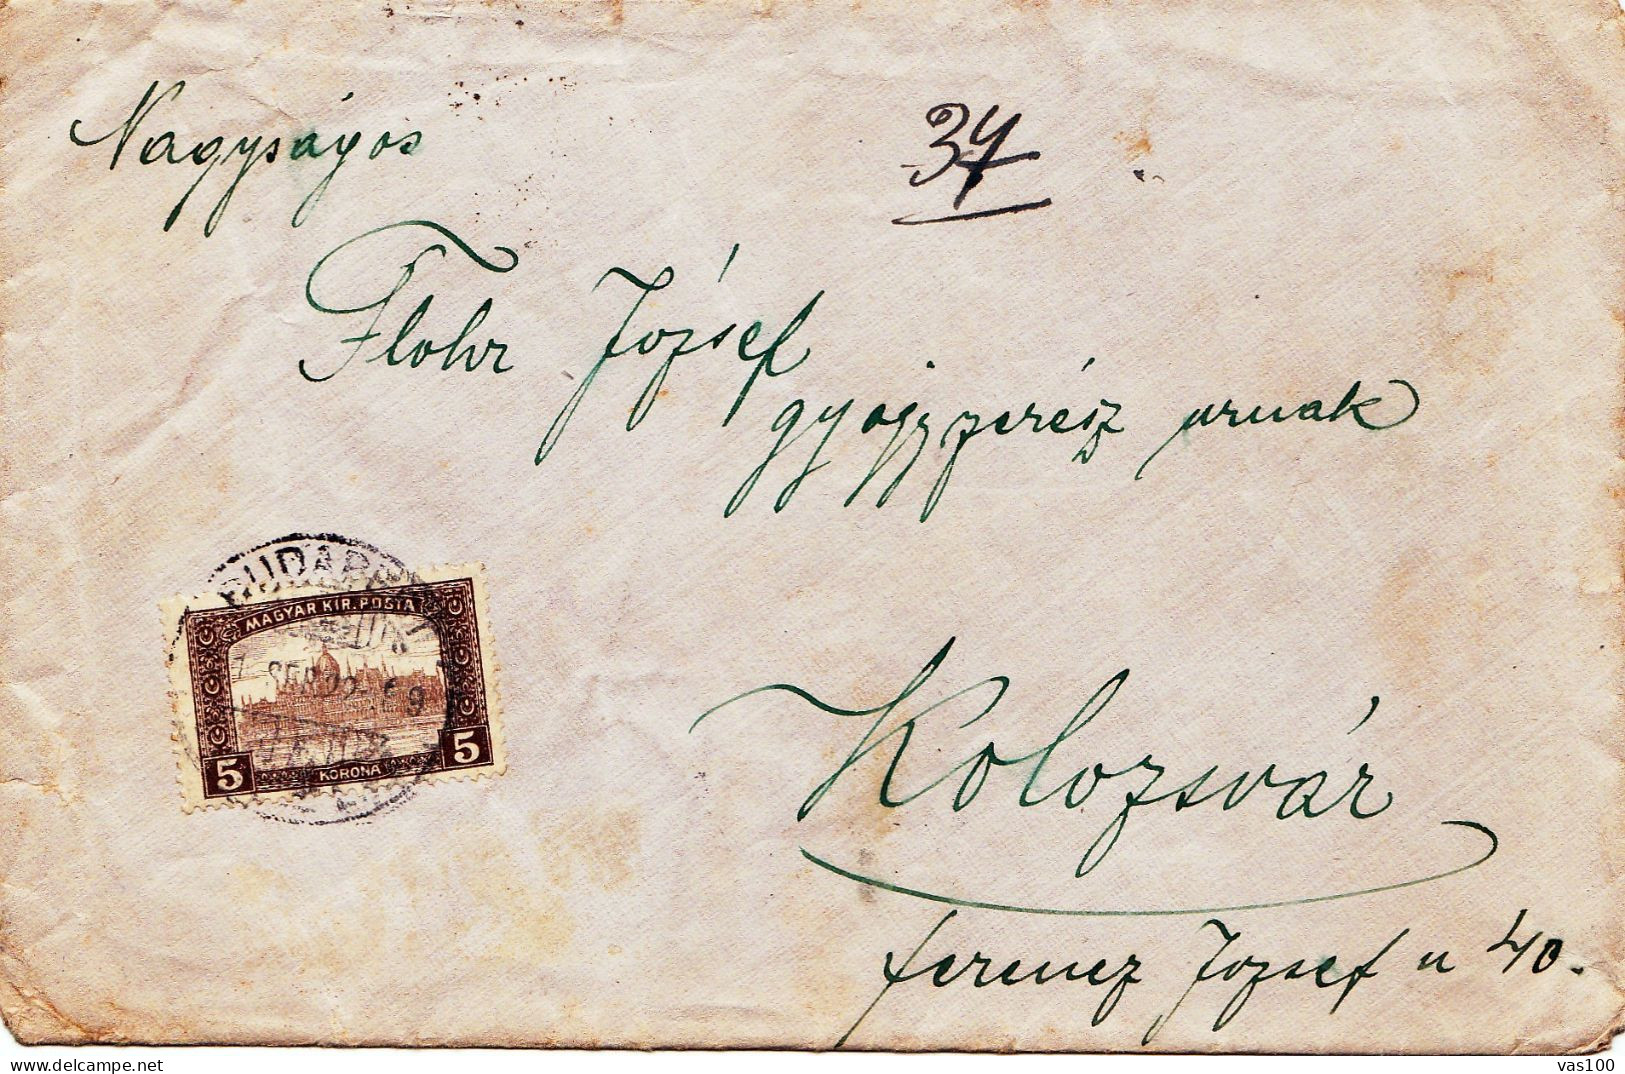 Nagyságos
34
Flohr József
gyógyszerész urnak
BUDAPEST
MAGYAR KIR. POSTA
SEP 22
5 KORONA 5
Kolozsvár
ferencz József u 40.
www.delcampe.net
vas100